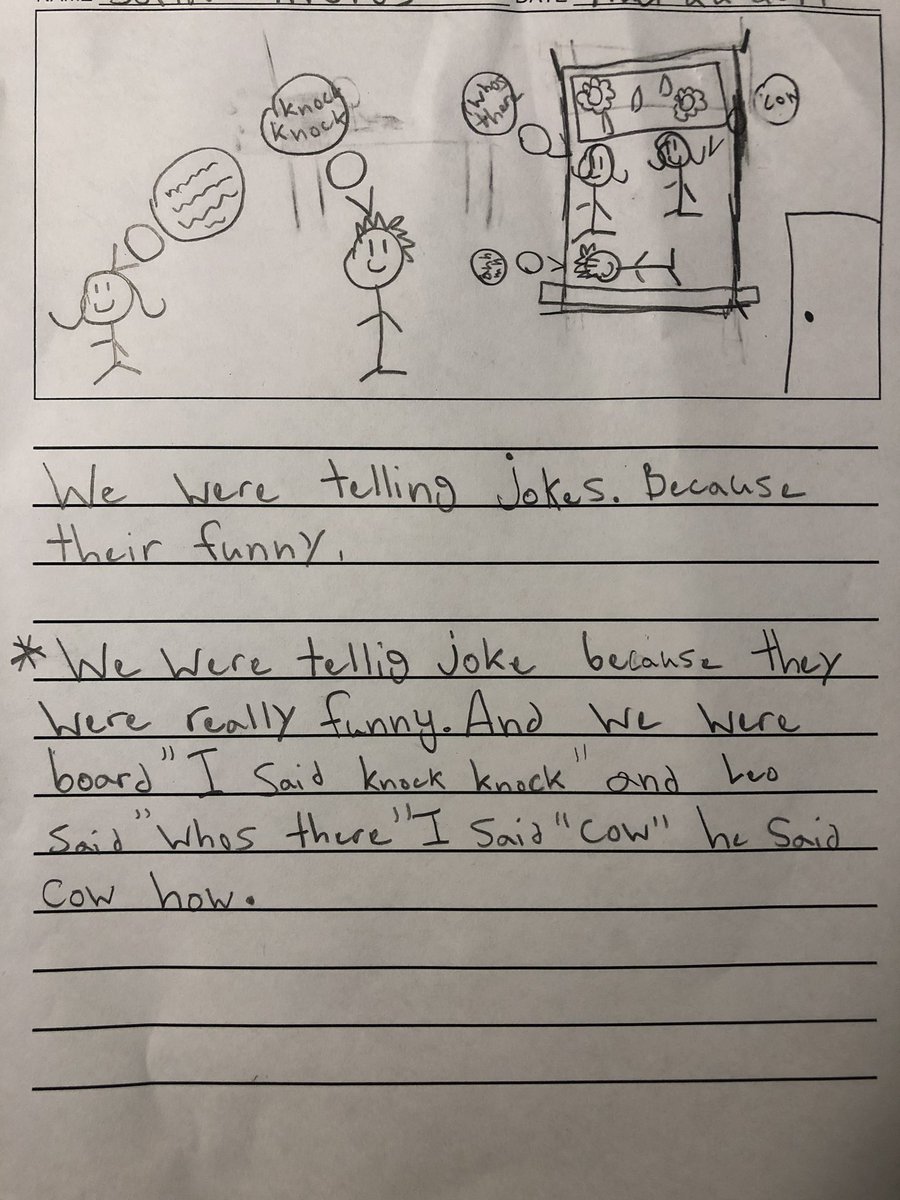 knock
knock
whos
ther
cow
We were telling jokes. Because
their funny.
* We were tellig joke because they
were really funny. And we were
board" I said knock knock" and Leo
said "whos there" I said "cow" he said
cow how.